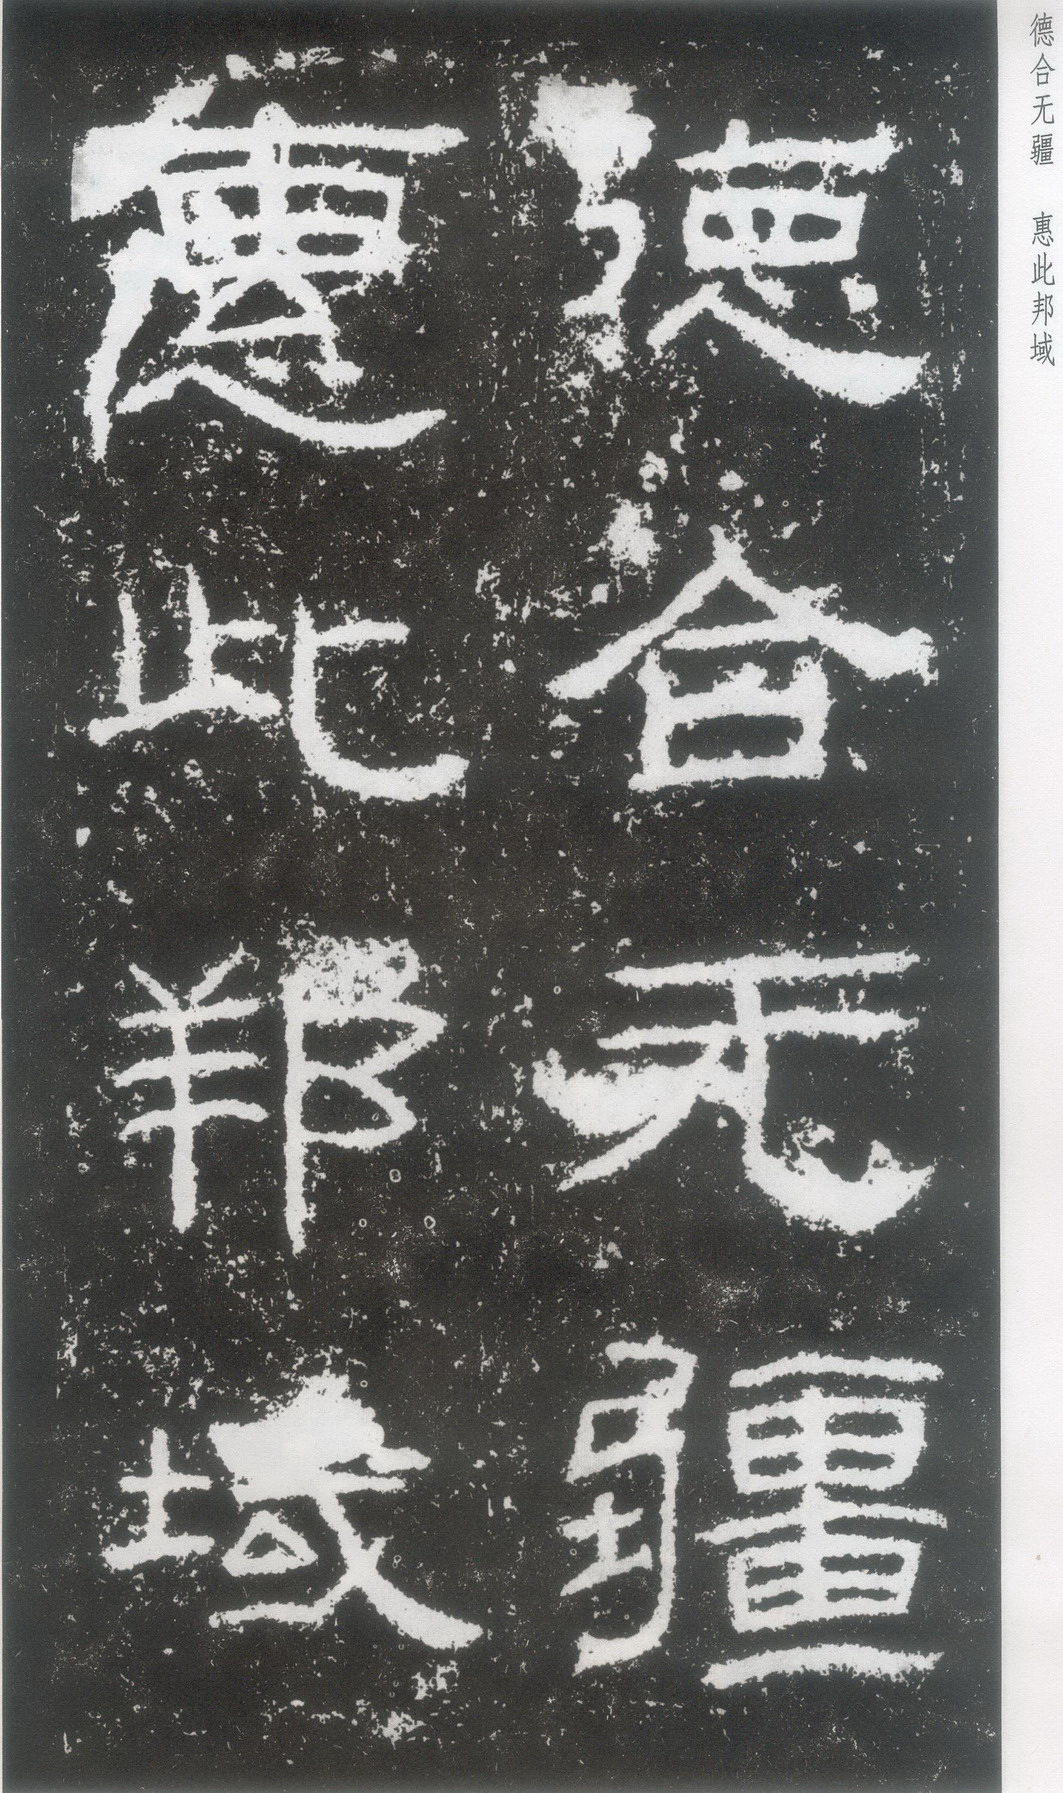 德合无疆　惠此邦域
德合无疆
惠此邦域